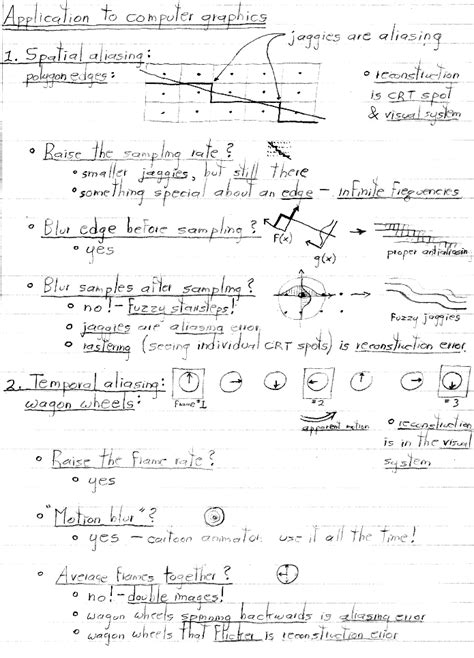 Application to computer graphics
jaggies are aliasing
1. Spatial aliasing:
polygon edges:
• reconstruction
is CRT spot
& visual system
• Raise the sampling rate?
• smaller jaggies, but still there
• something special about an edge – infinite frequencies
• Blur edge before sampling?
• yes
F(x)
g(x)
proper antialiasin
• Blur samples after sampling?
• no! – Fuzzy stairsteps!
• jaggies are aliasing error
• rastering (seeing individual CRT spots) is reconstruction error
Fuzzy jaggies
2. Temporal aliasing:
wagon wheels:
Frame #1
#2
#3
apparent motion
• reconstruction
is in the visual
system
• Raise the frame rate?
• yes
• "Motion blur"?
• yes – cartoon animators use it all the time!
• Average frames together?
• no! – double images!
• wagon wheels spinning backwards is aliasing error
• wagon wheels that flicker is reconstruction error